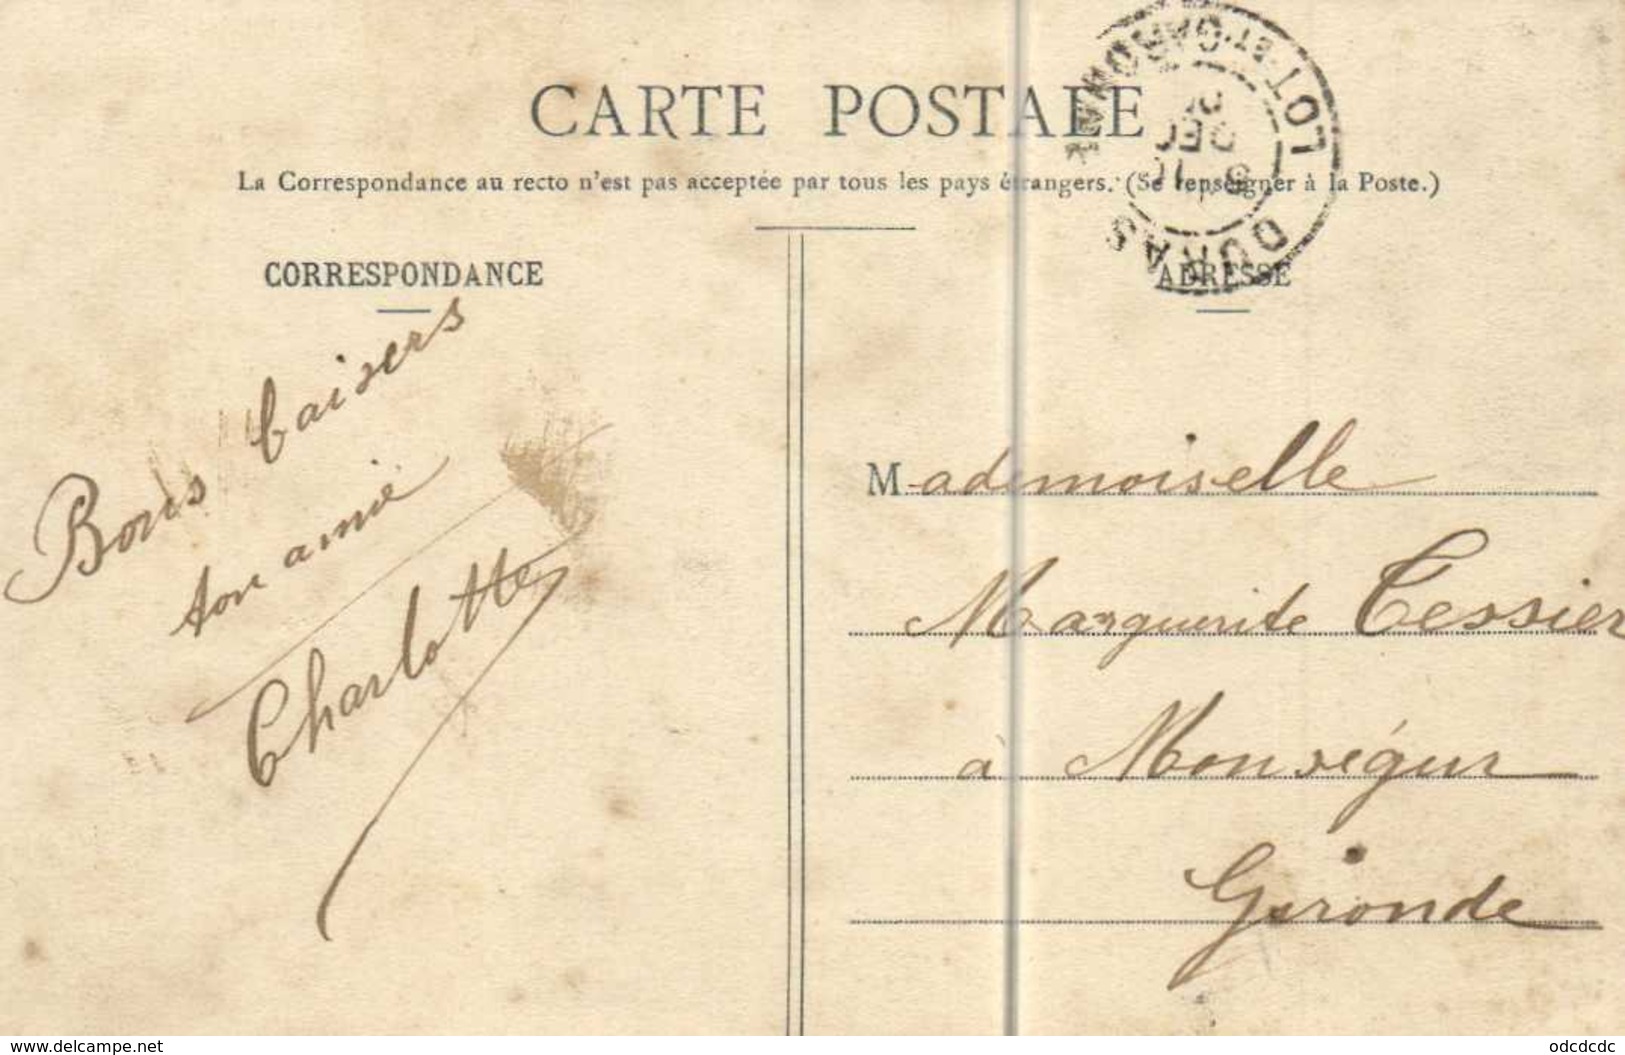 CARTE POSTALE
La Correspondance au recto n'est pas acceptée par tous les pays étrangers. (Se renseigner à la Poste.)
CORRESPONDANCE
Bons baisers
ton amie
Charlotte
ADRESSE
LOT-ET-GARONNE
DURAS
Mademoiselle
Marguerite Tessier
à Monségur
Gironde
www.delcampe.net
odcdcdc